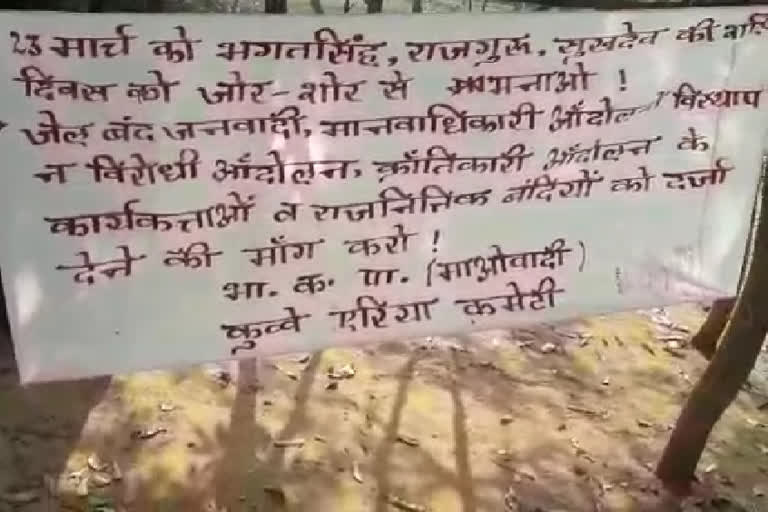 23 मार्च को भगतसिंह, राजगुरू, सुखदेव की
दिवस को जोर-शोर से मनाओ !
जेल बंद जनवादी, मानवाधिकारी आँदोलन विस्थाप
न विरोधी आँदोलन, क्राँतिकारी आँदोलन के
कार्यकत्ताओं व राजनितिक बंदियों को दर्जा
देने की माँग करो !
भा. क. पा. (माओवादी)
कुव्वे एरिया कमेटी